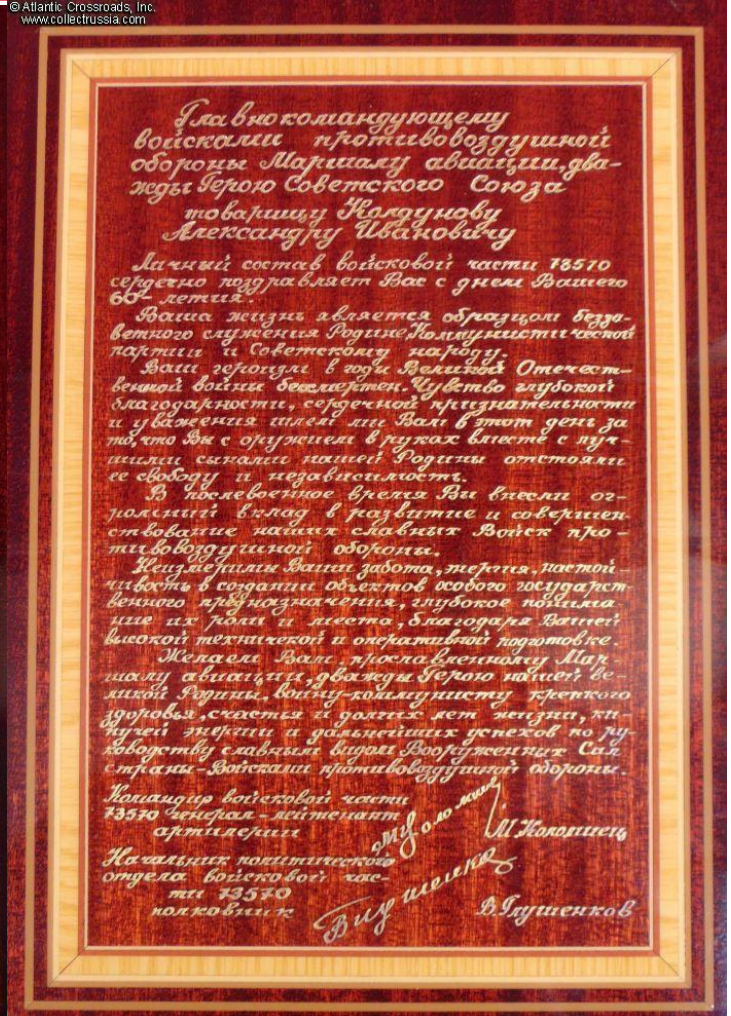 © Atlantic Crossroads, Inc.
www.collectrussia.com
Главнокомандующему
войсками противовоздушной
обороны Маршалу авиации, два-
жды Герою Советского Союза
товарищу Колдунову
Александру Ивановичу
Личный состав войсковой части 73570
сердечно поздравляет Вас с днем Вашего
60-летия.
Ваша жизнь является образцом безза-
ветного служения Родине, Коммунистической
партии и Советскому народу.
Ваш героизм в годы Великой Отечест-
венной войны бессмертен. Чувство глубокой
благодарности, сердечной признательности
и уважения шлем мы Вам в этот день за
то, что Вы с оружием в руках вместе с луч-
шими сынами нашей Родины отстояли
ее свободу и независимость.
В послевоенное время Вы внесли ог-
ромный вклад в развитие и совершен-
ствование наших славных Войск про-
тивовоздушной обороны.
Неизмеримы Ваши забота, энергия, настой-
чивость в создании объектов особого государст-
венного предназначения, глубокое понима-
ние их роли и места, благодаря Вашей
высокой технической и оперативной подготовке.
Желаем Вам, прославленному Мар-
шалу авиации, дважды Герою нашей ве-
ликой Родины, воину-коммунисту крепкого
здоровья, счастья и долгих лет жизни, ки-
пучей энергии и дальнейших успехов по ру-
ководству славным видом Вооруженных Сил
страны-Войсками противовоздушной обороны.
Командир войсковой части
73570 генерал-лейтенант
артиллерии
М Коломиец
Начальник политического
отдела войсковой час-
ти 73570
полковник
В. Глушенков